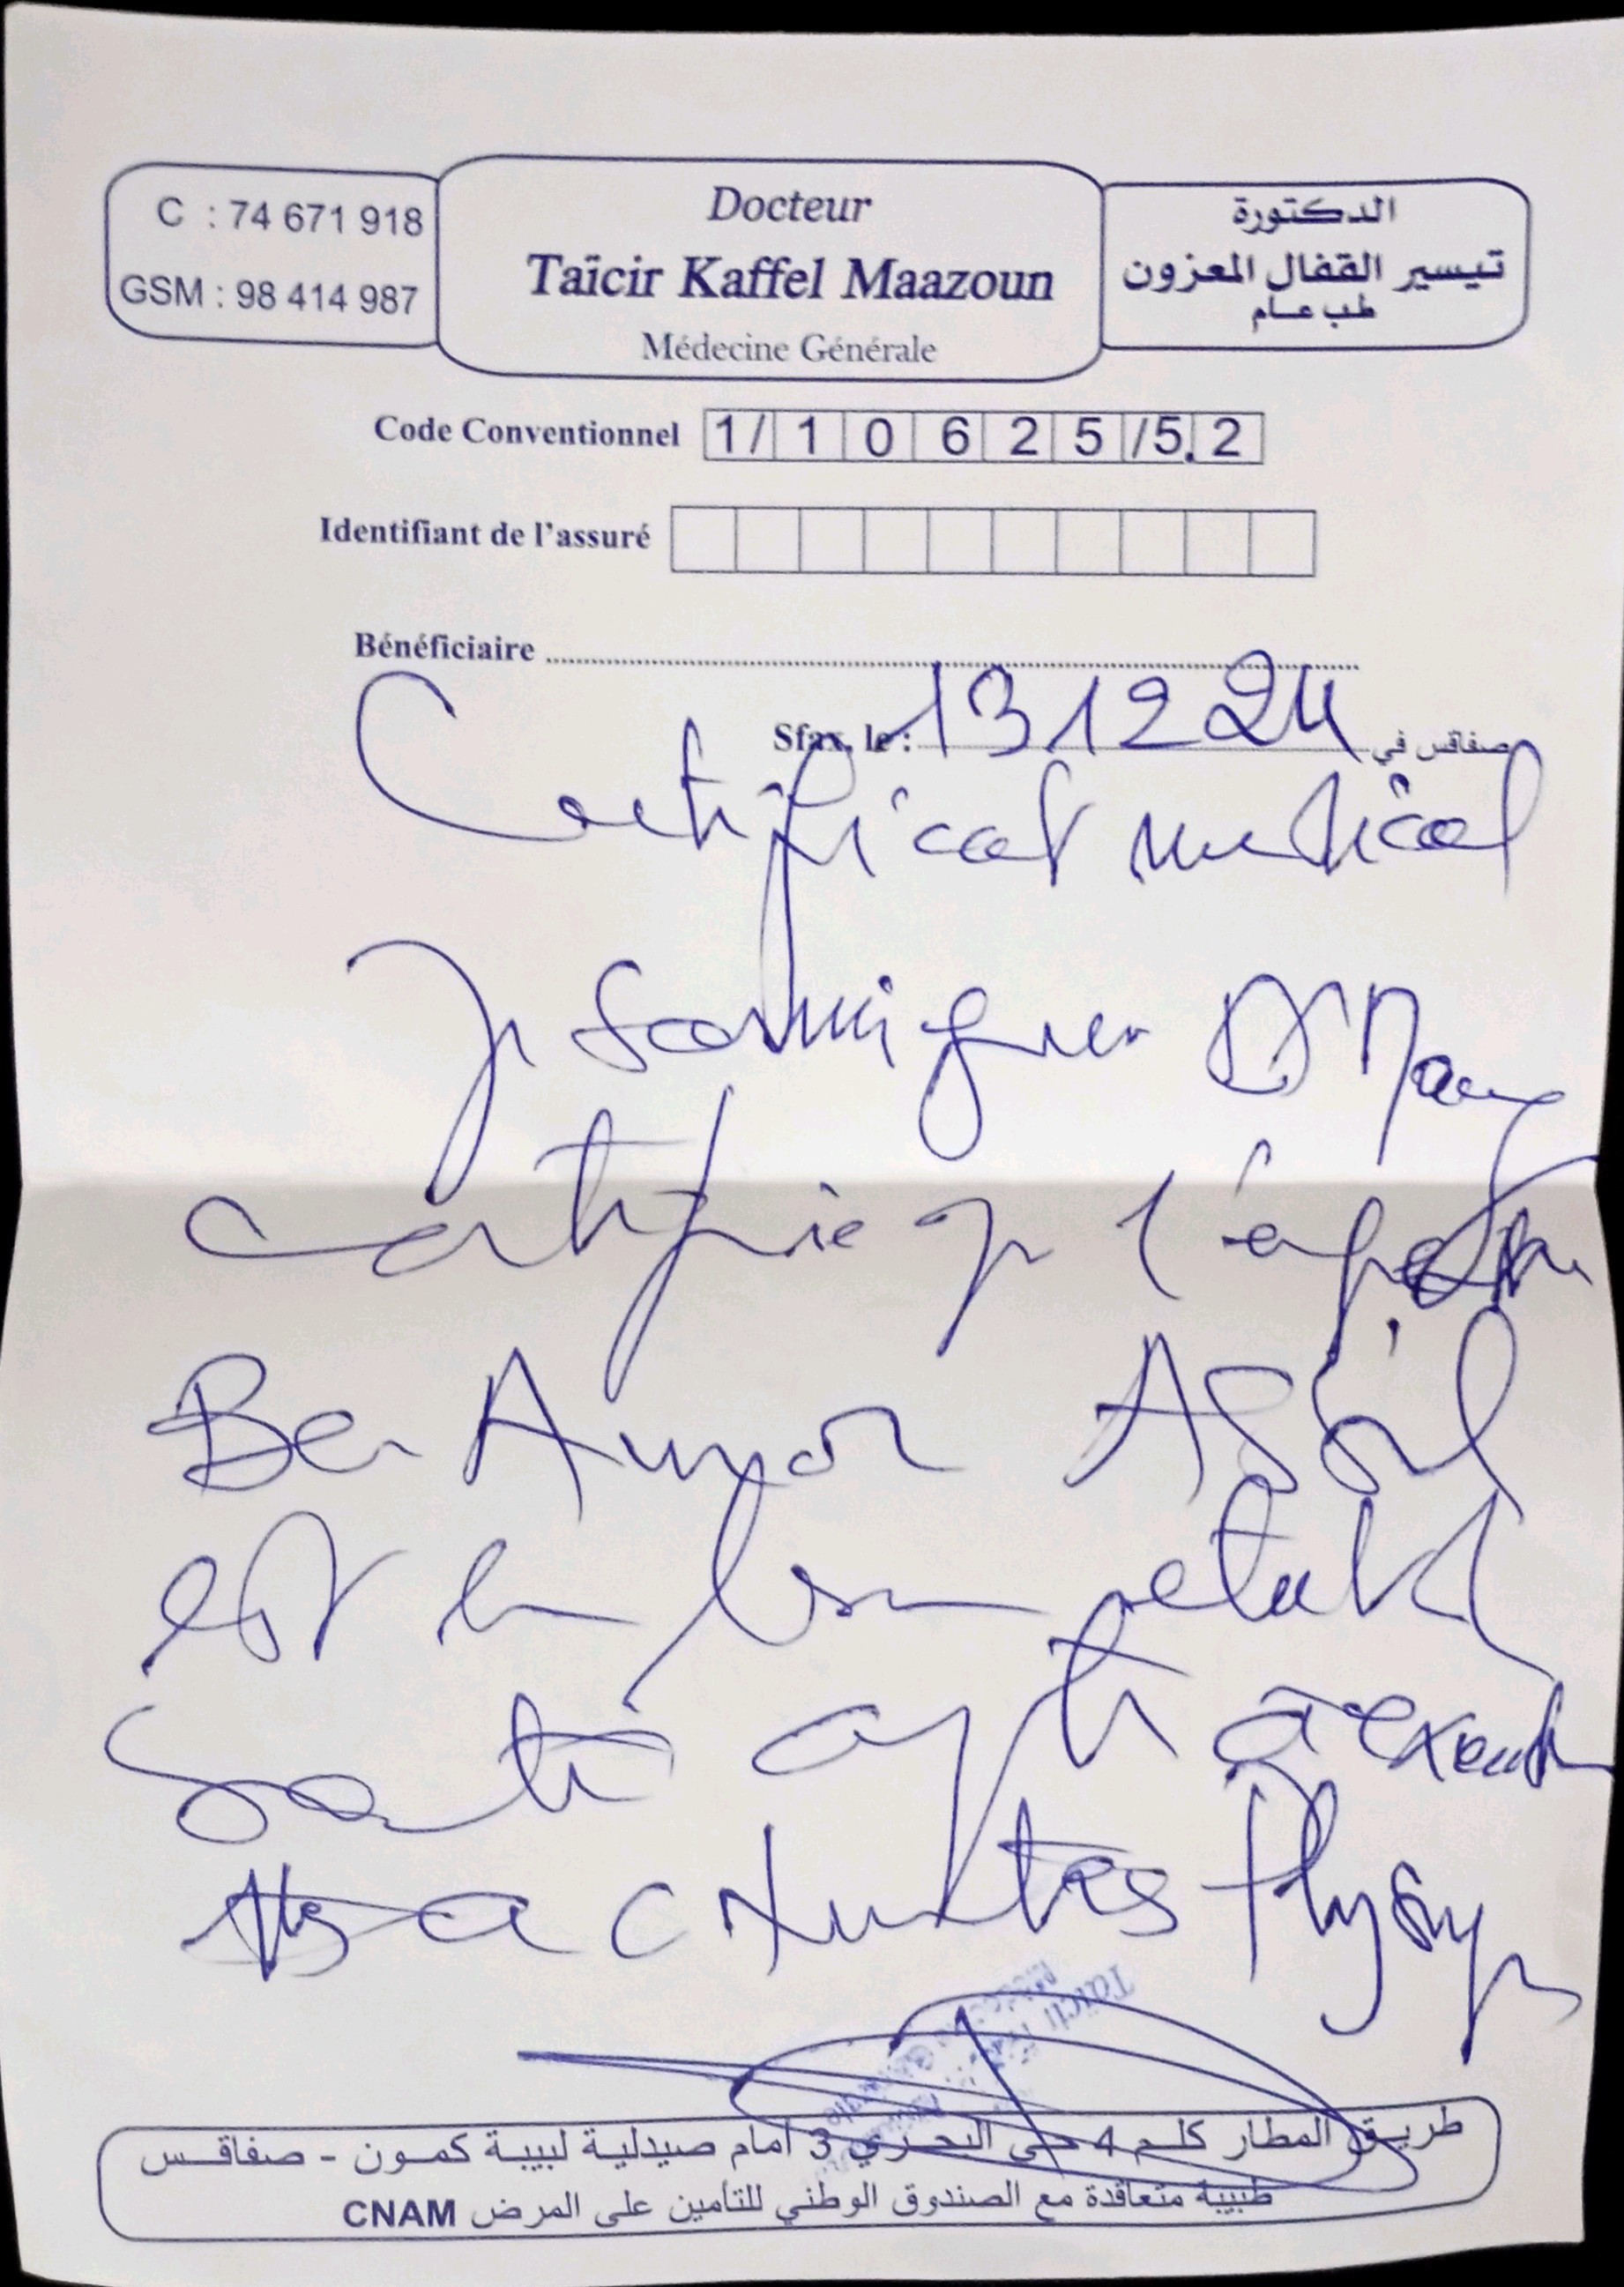 C : 74 671 918
GSM : 98 414 987
Docteur
Taïcir Kaffel Maazoun
Médecine Générale
الدكتورة
تيسير القفال المعزون
طب عام
Code Conventionnel 1/ 1 0 6 2 5 /5. 2
Identifiant de l'assuré
Bénéficiaire
Sfax, le : 13 12 24 صفاقس في
Certificat medical
Je soussignée Dr Maaz
certifie que l'
Ben Aumor Assil
est en bon etat de
santé apte à
activites Physiq
Taicir
طريق المطار كلم 4 حي البحري 3 أمام صيدلية لبيبة كمون - صفاقس
طبيبة متعاقدة مع الصندوق الوطني للتأمين على المرض CNAM